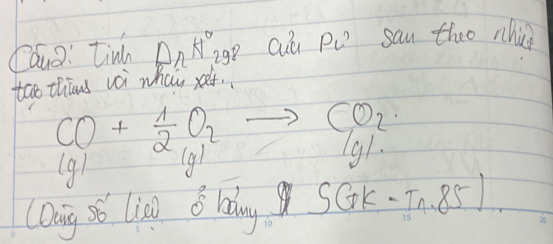 Câu2: Tính ΔrH⁰298 của pứ sau theo nhiệt
tạo thành và nhận xét.
CO + 1/2 O2 ⟶ CO2.
(g) (g) (g).
(Dùng số liệu ở bảng SGK - Tr.85)